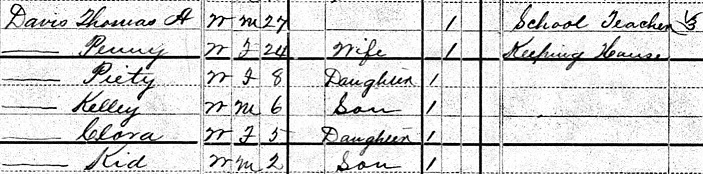 Davis Thomas A W M 27 1 School Teacher 1/3
—— Penny W F 24 Wife 1 Keeping House
—— Piety W F 8 Daughter 1
—— Kelley W M 6 Son 1
—— Clora W F 5 Daughter 1
—— Kid W M 2 Son 1